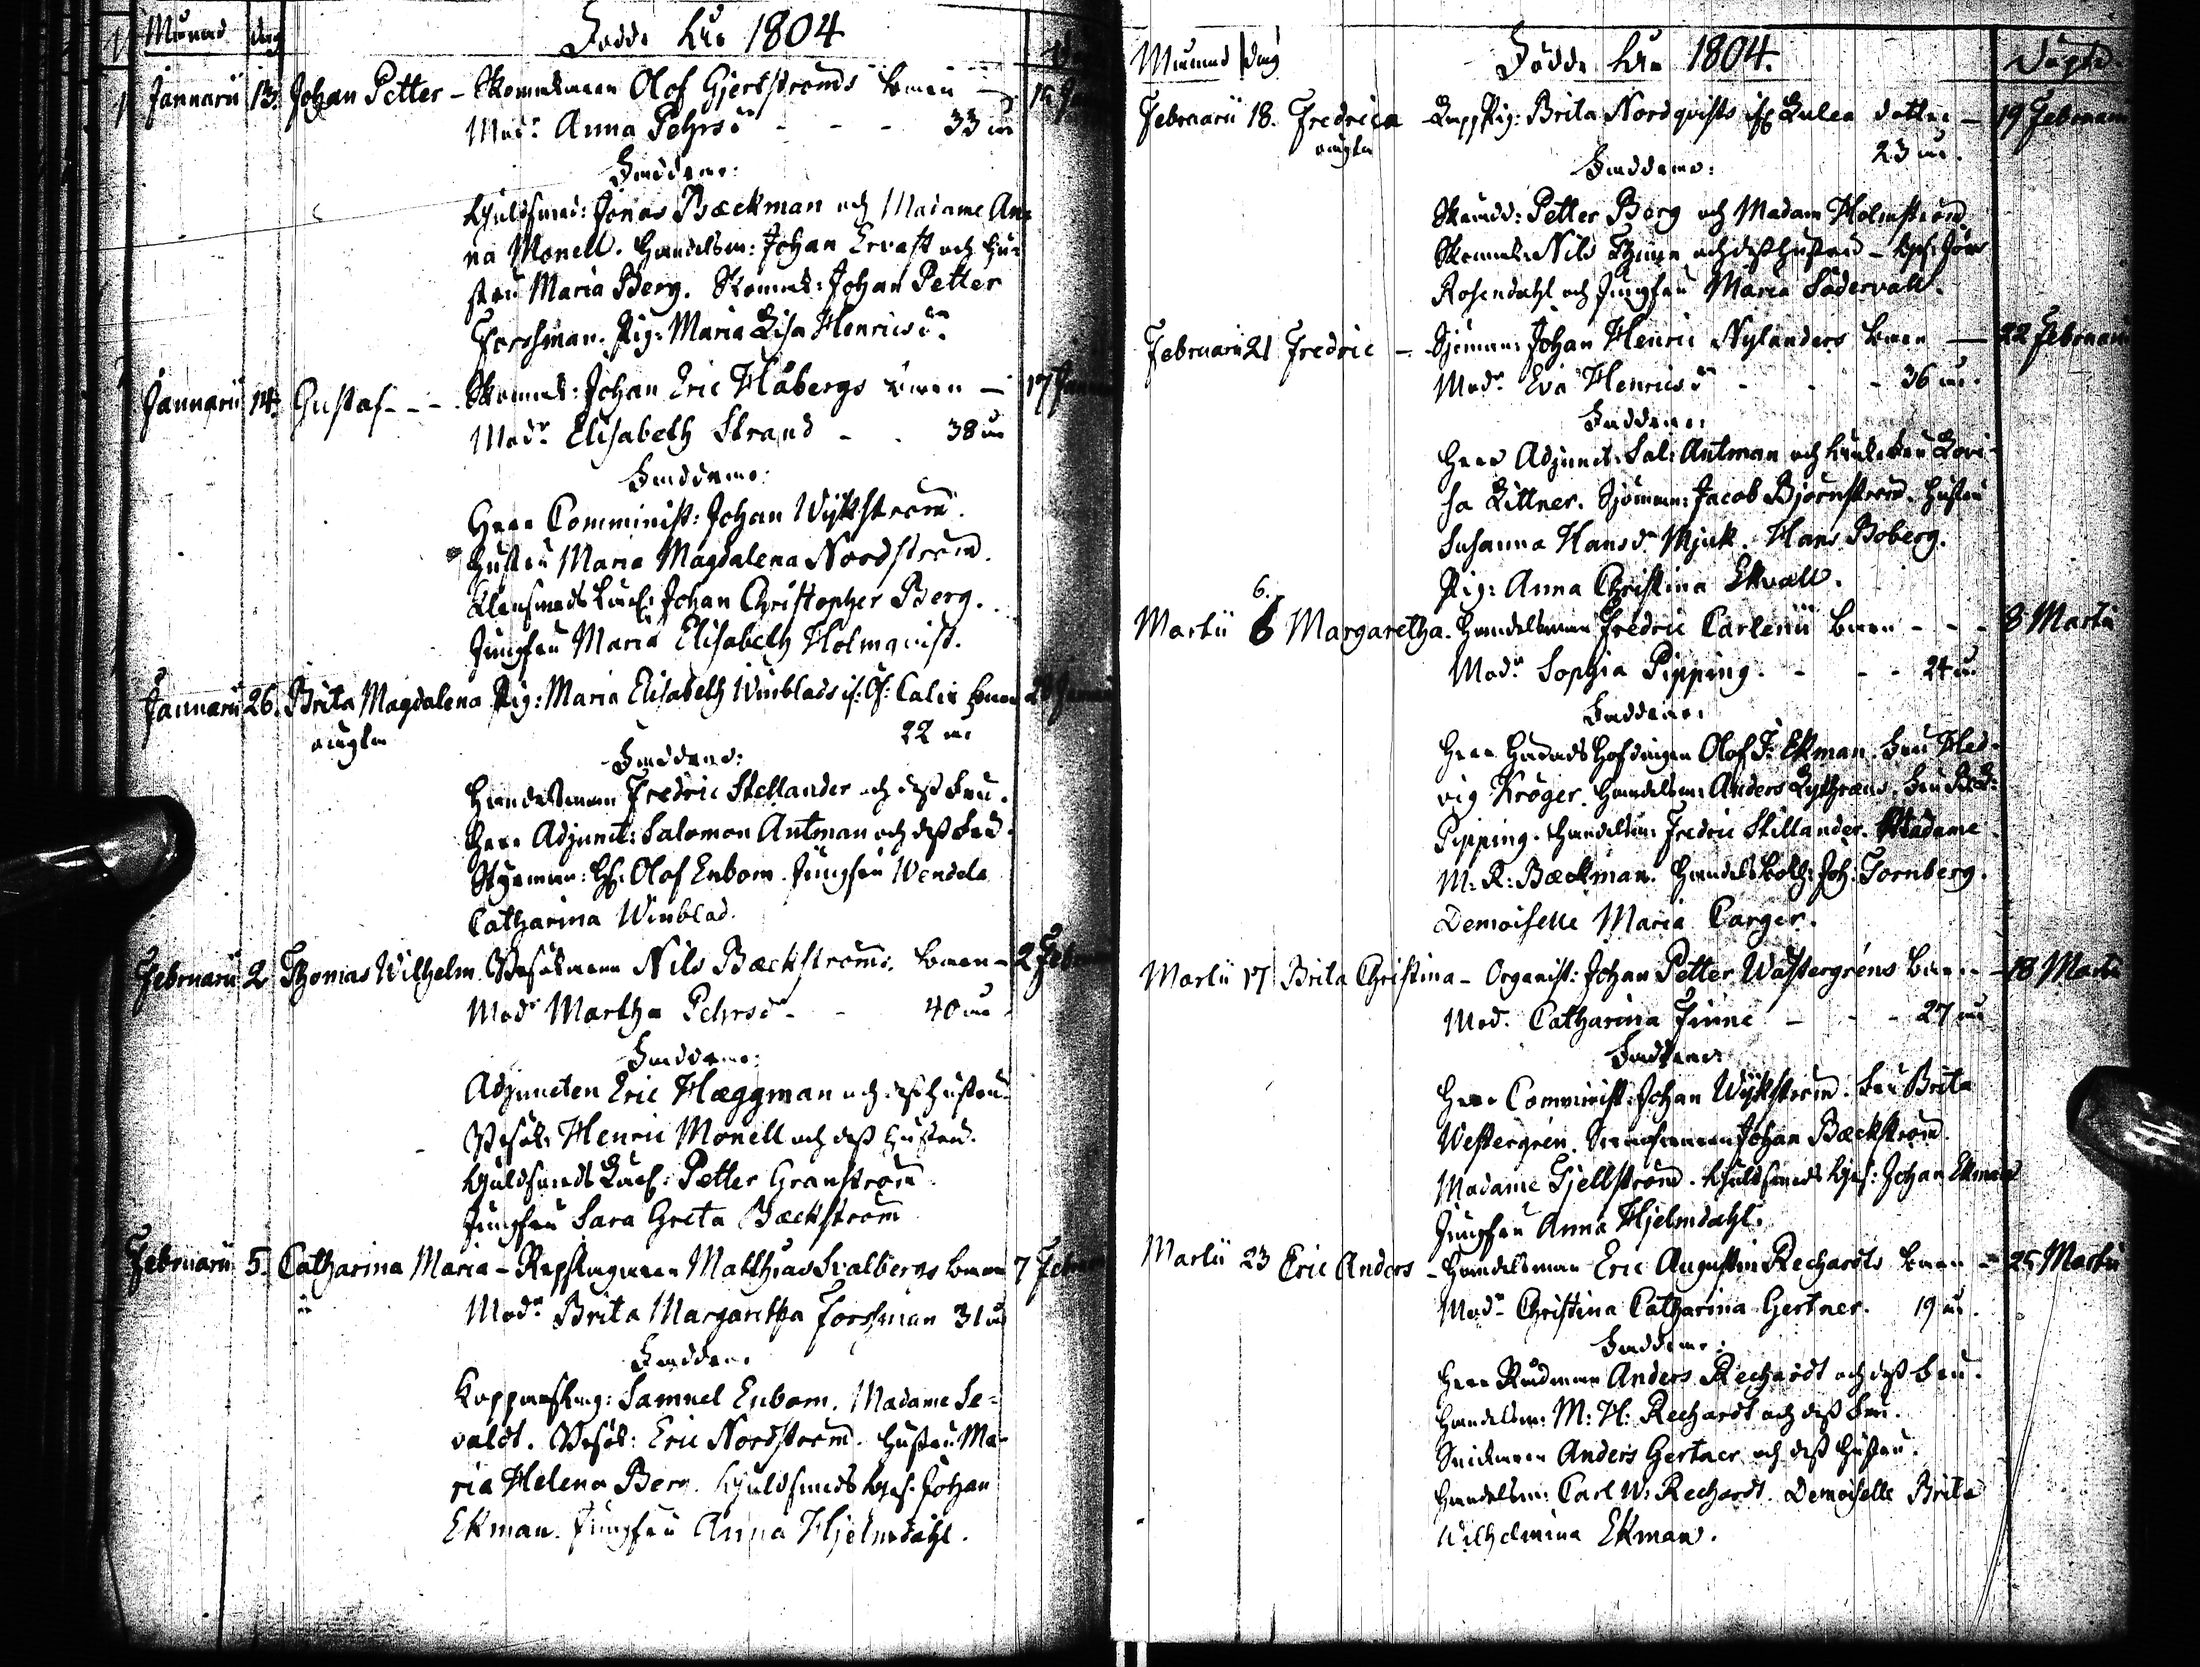 Månad dag Födde År 1804
Januarii 13. Johan Petter - Skomakaren Olof Gjers ströms barn
Modr Anna Pehrsd:r - - - 33 år
Faddrarne:
Guldsmed: Jonas Bæckman och Madame An-
na Monell. Handelsm: Johan Ervast och Hu-
stru Maria Berg. Skomak: Johan Petter
Forssman. Pig: Maria Lisa Henricsd:r
Januarii 14. Gustaf - - - Skomak: Johan Eric Håbergs barn - 17 Januarii
Modr Elisabeth Strand - - 38 år
Faddrarne:
Herr Comminist: Johan Wijkström.
Hustru Maria Magdalena Nordström.
Johan Christopher Berg.
Jungfru Maria Elisabeth Holmqvist.
Januarii 26. Brita Magdalena Pig: Maria Elisabeth Winblads barn
oägta 22 år
Faddrarne:
Handelsmann Fredric Stellander och dess Fru.
Herr Adjunct: Salomon Antman och dess Fru.
Styrman: Olof Enbom. Jungfru Wendela
Catharina Winblad.
Februarii 2 Thomas Wilhelm. Nils Bæckströms barn - 2 Februarii
Modr Martha Pehrsd:r - - 40 år
Faddrarne:
Adjuncten Eric Hæggman och dess hustru
Henric Monell och dess Hustru.
Guldsmeds Lärl: Petter Granström
Jungfru Sara Greta Bæckström
Februarii 5. Catharina Maria - Repslagaren Matthias Svalbergs barn 7 Februarii
Modr Brita Margaretha Forssman 31 år
Faddrar:
Kopparslag: Samuel Enbom. Madame Se-
valdt. Eric Nordström. Hustru Ma-
ria Helena Berg. Guldsmeds Ges: Johan
Ekman. Jungfru Anna Hjelmdahl.
Månad dag Födde År 1804. Döpte
Februarii 18. Fredrica Pig: Brita Nordqvists dotter - 19 Februarii
oägta 23 år.
Faddrarne:
Petter Berg och Madam Holmström
Skomak: Nils och dess hustru
Rosendahl och Jungfru Maria Södervall.
Februarii 21 Fredric - Sjöman: Johan Henric Nylanders barn - 22 Februarii
Modr Eva Henricsd:r - - - 36 år.
Faddrarne:
Herr Adjunct: Sal: Antman och Lovi-
sa Littner. Sjöman: Jacob Björnström. Hustru
Susanna Hansd:r Mjuk. Hans Boberg.
Pig: Anna Christina Ekvall.
6.
Martii 6 Margaretha. Handelsman Fredric Carlenii barn - - - 8 Martii
Modr Sophia Pipping. - - - 24 år
Faddrarne:
Herr Häradshöfdingen Olof J: Ekman. Fru Hed-
vig Kröger. Handelsm: Anders Lythræus. Fru
Pipping. Handelsm: Fredric Stillander. Madame
M: K: Bæckman. Handelsbokh: Joh: Tornberg.
Demoiselle Maria Carger.
Martii 17 Brita Christina - Organist: Johan Petter Wästergréns barn - 18 Martii
Mod. Catharina Finne - - - 27 år
Faddrarne:
Herr Comminist: Johan Wijkström. Fru Brita
Westergren. Johan Bæckström.
Madame Gjellström. Guldsmeds Ges: Johan Ekman
Jungfru Anna Hjelmdahl.
Martii 23 Eric Anders - Handelsman Eric Augustin Rechardts barn - 25 Martii
Modr Christina Catharina Gertner. 19 år.
Faddrarne:
Herr Rådman Anders Rechardt och dess Fru.
Handelsm: M: H: Rechardt och dess Fru.
Anders Gertner och dess Hustru.
Handelsm: Carl W: Rechardt. Demoiselle Brita
Wilhelmina Ekman.